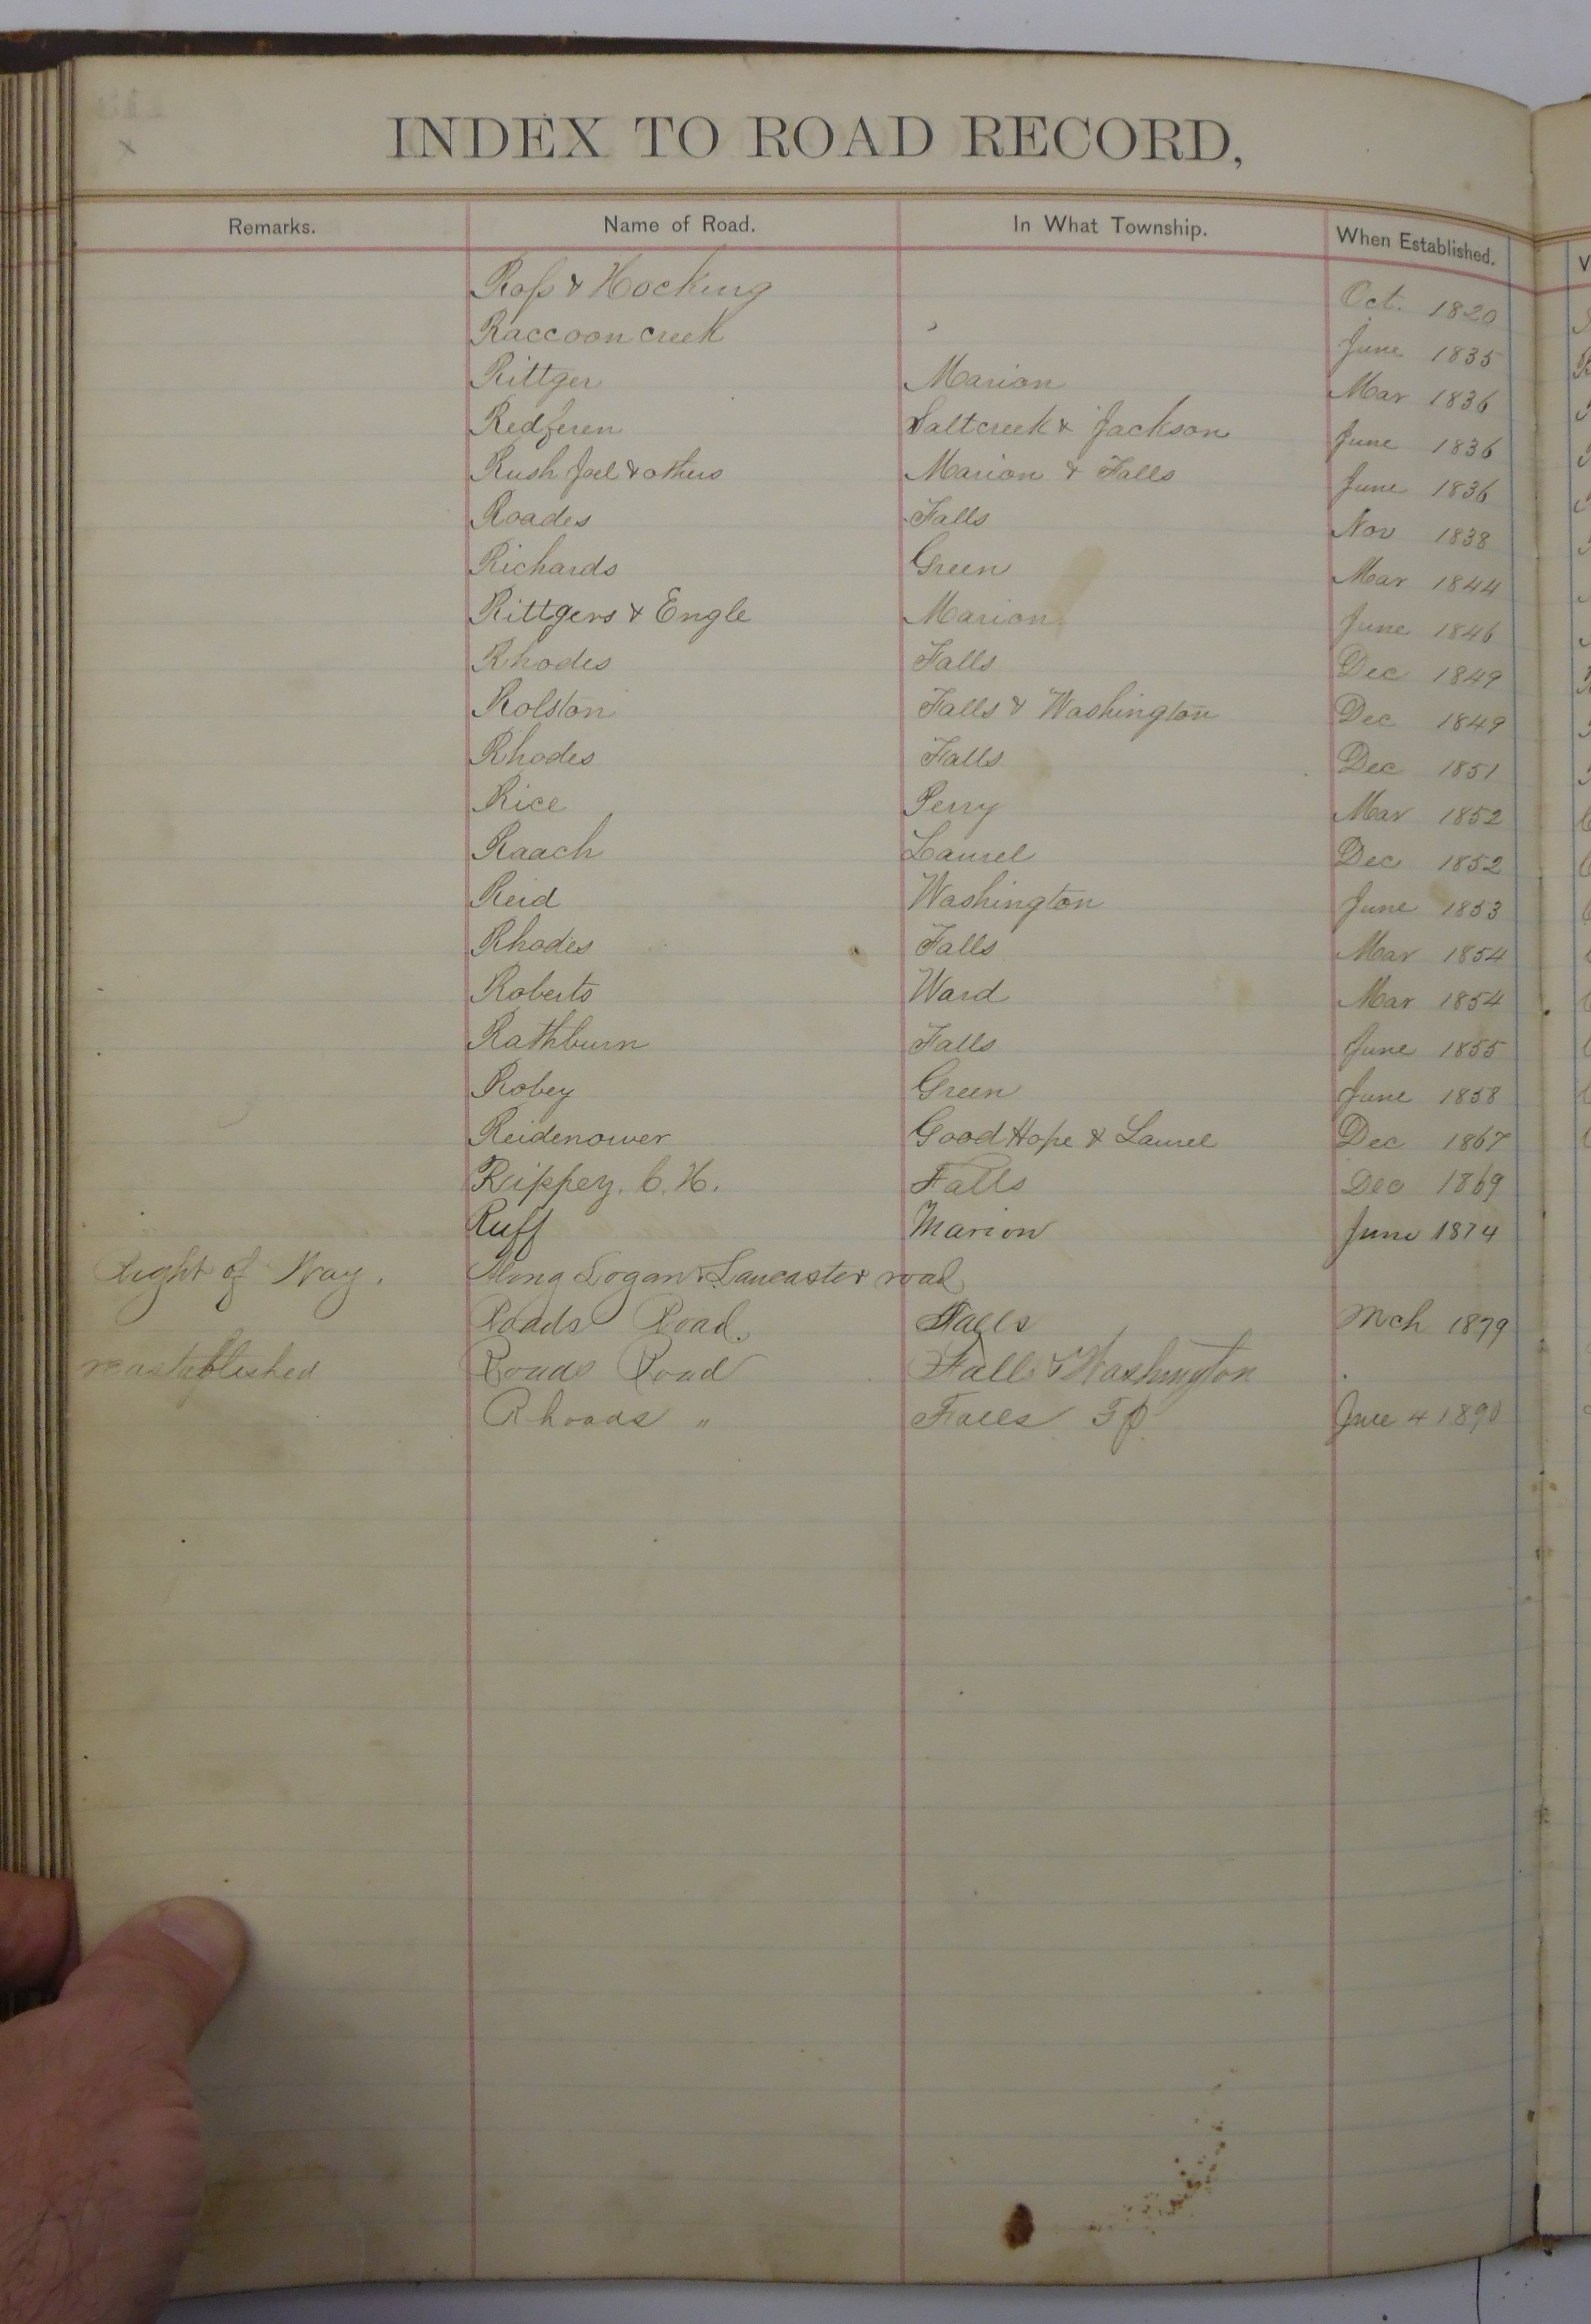 INDEX TO ROAD RECORD,
Remarks. Name of Road. In What Township. When Established.
Ross & Hocking Oct. 1820
Raccoon creek June 1835
Rittger Marion Mar 1836
Redferen Saltcreek & Jackson June 1836
Rush Joel & others Marion & Falls June 1836
Roades Falls Nov 1838
Richards Green Mar 1844
Rittgers & Engle Marion June 1846
Rhodes Falls Dec 1849
Rolston Falls & Washington Dec 1849
Rhodes Falls Dec 1851
Rice Perry Mar 1852
Raach Laurel Dec 1852
Reid Washington June 1853
Rhodes Falls Mar 1854
Roberts Ward Mar 1854
Rathburn Falls June 1855
Robey Green June 1858
Reidenower Good Hope & Laurel Dec 1867
Rippey. C. H. Falls Dec 1869
Ruff Marion June 1874
Right of Way. Along Logan & Lancaster road
Roads Road. Falls Mch 1879
reastablished Roads Road Fall & Washington
Rhoads " Falls Tp June 4 1890